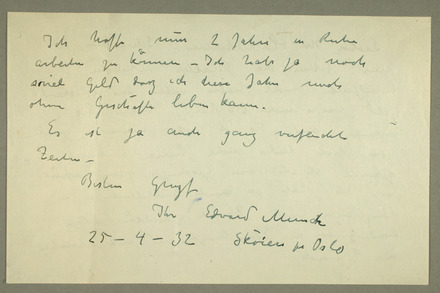 Ich hoffe nun 2 Jahre in Ruhe
arbeiten zu können – Ich habe ja noch
soviel Geld dass ich diese Jahre noch
ohne Geschäfte leben kann.
Es ist ja auch ganz
Zeiten –
Besten Gruss
Ihr Edvard Munch
25 – 4 – 32 Sköien pr Oslo